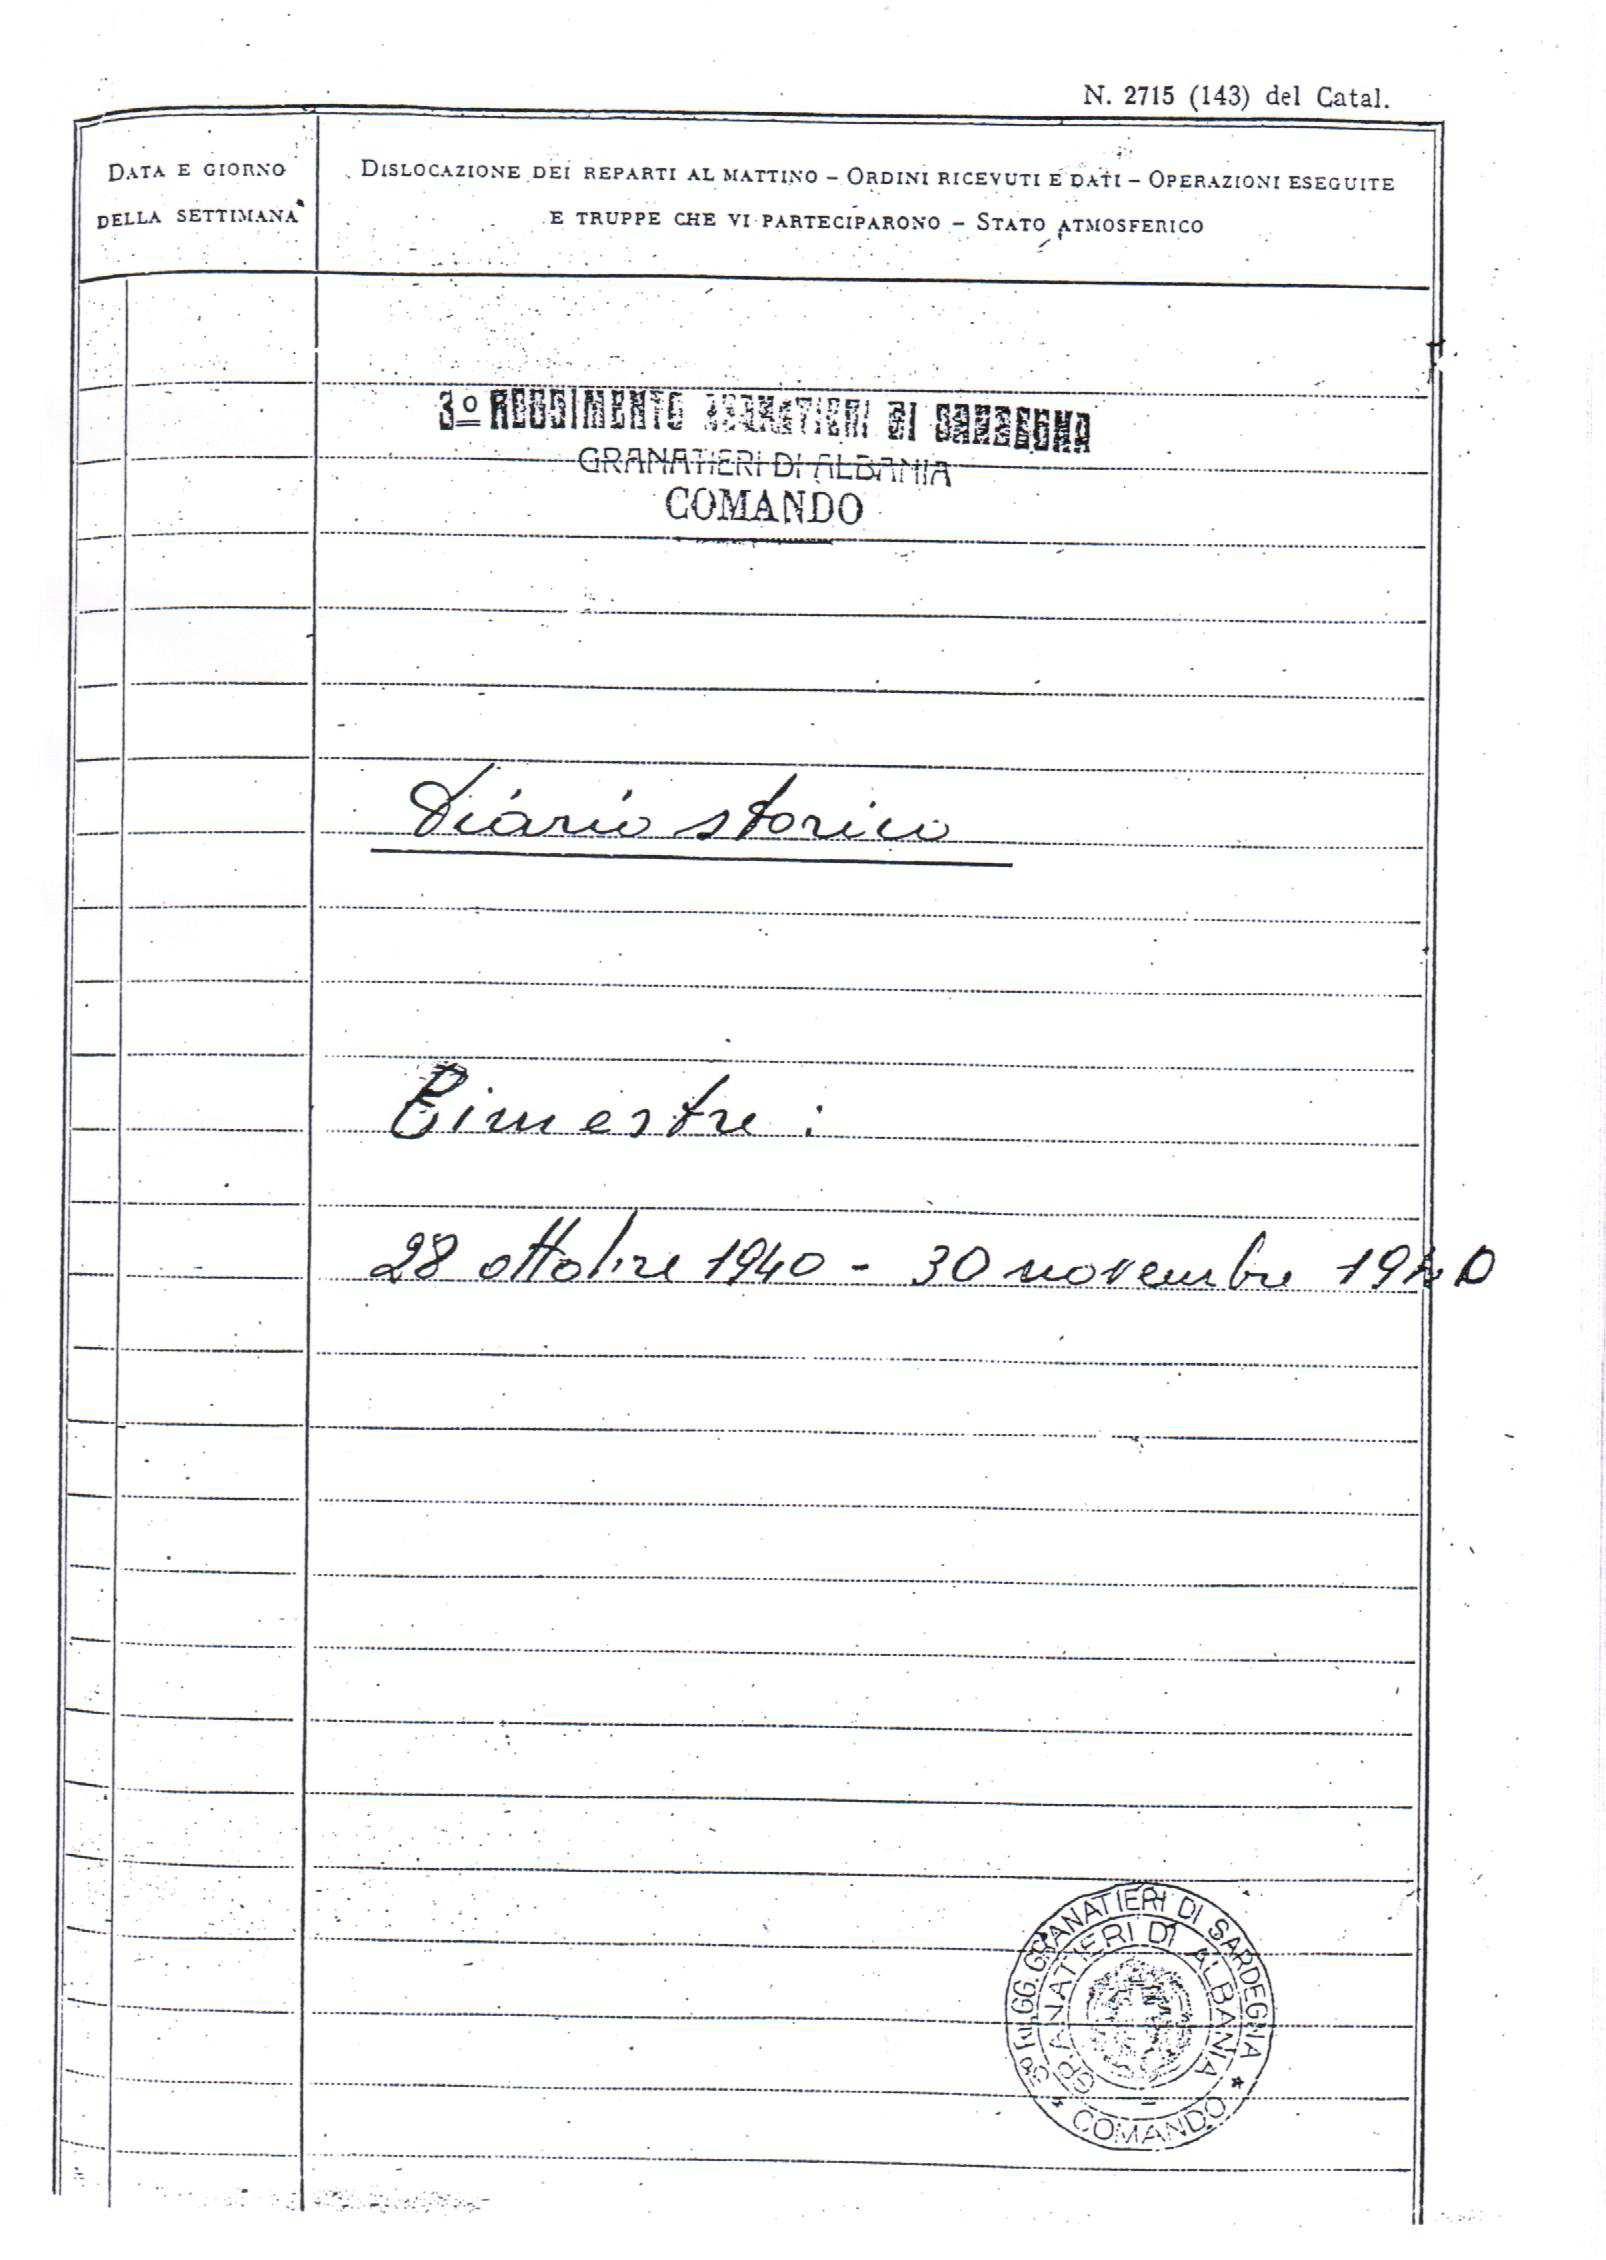 N. 2715 (143) del Catal.
DATA E GIORNO
DELLA SETTIMANA
DISLOCAZIONE DEI REPARTI AL MATTINO – ORDINI RICEVUTI E DATI – OPERAZIONI ESEGUITE
E TRUPPE CHE VI PARTECIPARONO – STATO ATMOSFERICO
3º REGGIMENTO GRANATIERI DI SARDEGNA
GRANATIERI DI ALBANIA
COMANDO
Diario storico
Bimestre :
28 ottobre 1940 - 30 novembre 1940
3º REGG. GRANATIERI DI SARDEGNA
GRANATIERI DI ALBANIA
* COMANDO *